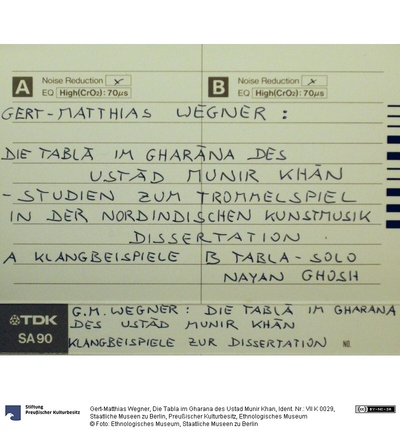 A Noise Reduction x
EQ High(CrO₂): 70µs
B Noise Reduction x
EQ High(CrO₂): 70µs
GERT-MATTHIAS WEGNER :
DIE TABLĀ IM GHARĀNA DES
USTĀD MUNIR KHĀN
- STUDIEN ZUM TROMMELSPIEL
IN DER NORDINDISCHEN KUNSTMUSIK
DISSERTATION
A KLANGBEISPIELE B TABLA - SOLO
NAYAN GHOSH
TDK
SA90
G.M. WEGNER : DIE TABLĀ IM GHARANA
DES USTĀD MUNIR KHĀN
KLANGBEISPIELE ZUR DISSERTATION
Stiftung
Preußischer Kulturbesitz
Gert-Matthias Wegner, Die Tabla im Gharana des Ustad Munir Khan, Ident. Nr.: VII K 0029,
Staatliche Museen zu Berlin, Preußischer Kulturbesitz, Ethnologisches Museum
© Foto: Ethnologisches Museum, Staatliche Museen zu Berlin